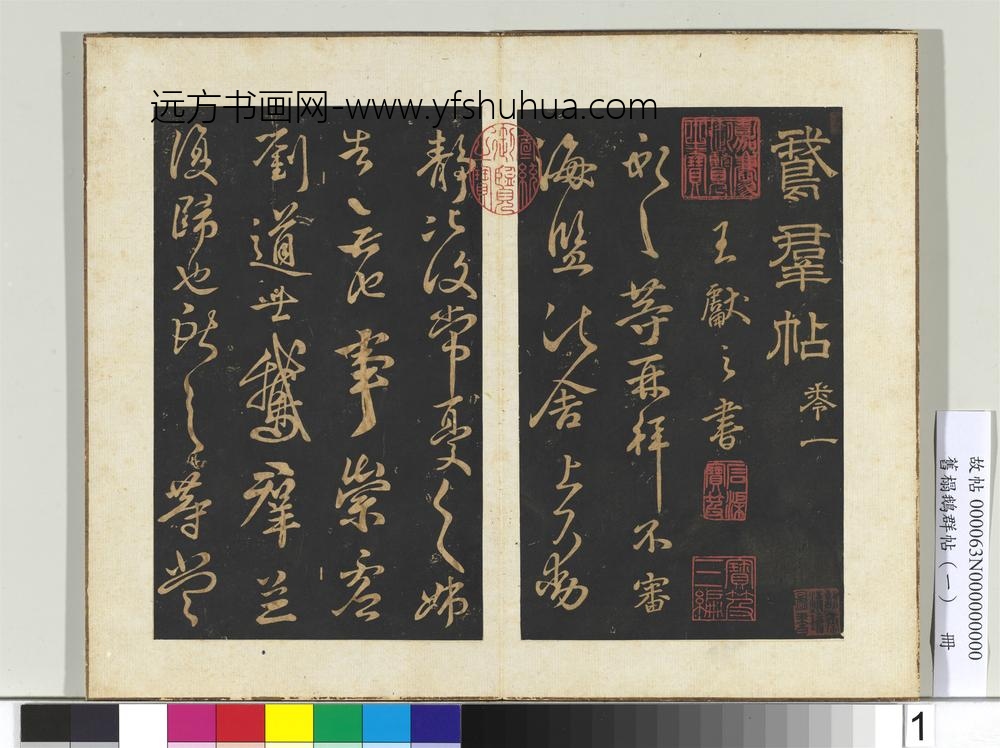 远方书画网-www.yfshuhua.com
鵞羣帖 卷一
嘉慶御覽之寶
王獻之書
石渠寶笈
寶笈三編
獻之等再拜不審
海鹽諸舍上下動
宣統御覽之寶
靜比復常憂之姊
告無他事崇虛
劉道士鵞羣並
復歸也獻之等當
故帖000063N000000000
舊榻鵝群帖（一） 冊
1